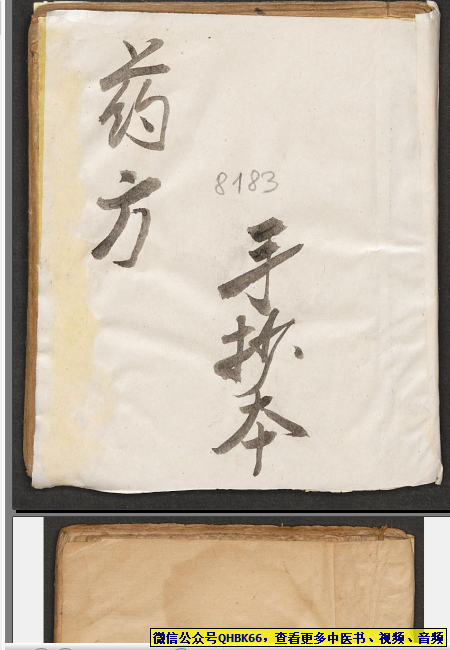 药方
8183
手抄本
微信公众号QHBK66，查看更多中医书、视频、音频